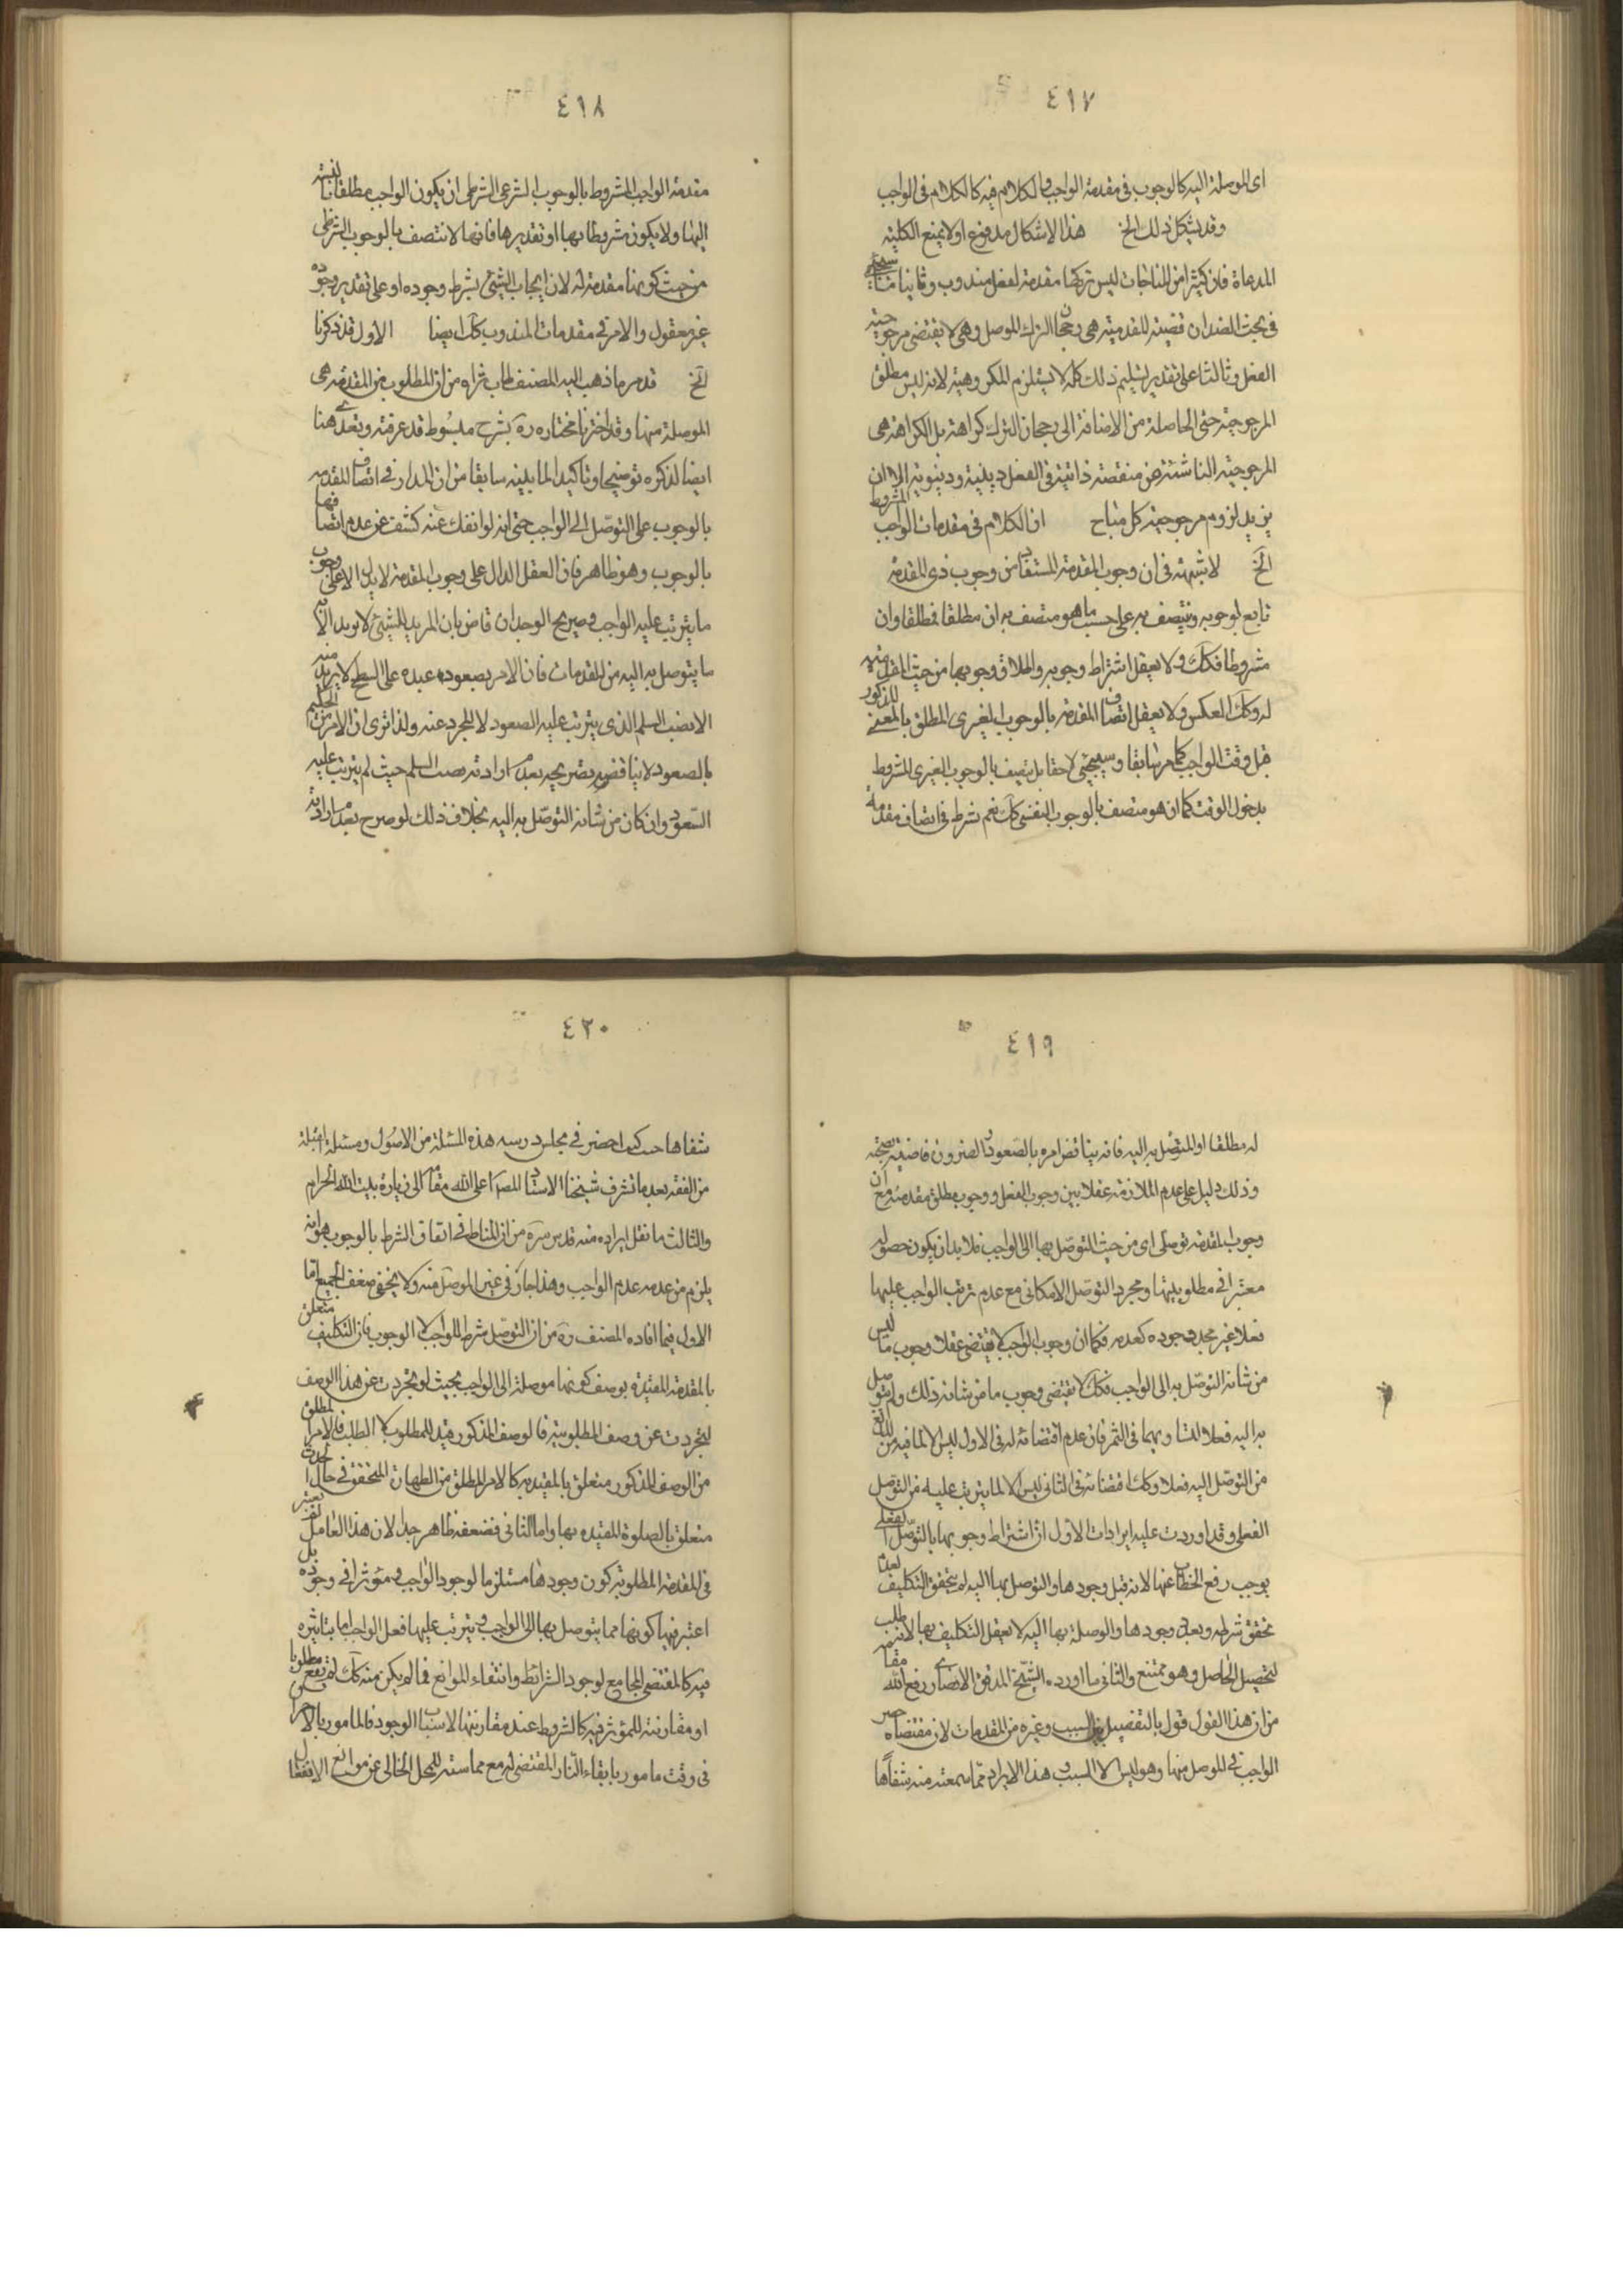 ٤١٧
اى الموصلة اليه كالوجوب فى مقدمة الواجب والكلام فيه كالكلام فى الواجب
وقد يشكل ذلك الخ هذا الاشكال مدفوع اولا بمنع الكلية
المدعاة فان كثيرا من المباحات ليس تركها مقدمة لفعل مندوب وثانيا بما سيجئ
فى بحث الضد ان قضية المقدمية هى رجحان الترك الموصل وهى لا يقتضى مرجوحية
الفعل وثالثا على تقدير تسليم ذلك كله لا يستلزم المكروهية لانه ليس مطلق
المرجوحية حتى الحاصلة من الاضافة الى رجحان الترك كراهة بل الكراهة هى
المرجوحية الناشئة عن منقصة ذاتية فى الفعل دينية ودنيوية الا ان
يريد لزوم مرجوحية كل مباح ان الكلام فى مقدمات الواجب المشروط
الخ لا شبهة فى ان وجوب المقدمة المستفاد من وجوب ذى المقدمة
تابع لوجوبه ويتصف به على حسب ما هو متصف به ان مطلقا فمطلقا وان
مشروطا فكك ولا يعقل اشتراط وجوبه واطلاق وجوبها من حيث المقدمية
له وكك العكس ولا يعقل اتصاف المقدمة بالوجوب الغيرى المطلق بالمعنى المذكور
قبل وقت الواجب كما مر سابقا وسيجئ لاحقا بل يتصف بالوجوب الغيرى المشروط
بدخول الوقت كما ان هو متصف بالوجوب النفسى كك نعم شرط فى اتصاف مقدمة
٤١٨
مقدمة الواجب المشروط بالوجوب الشرعى الشرطى ان يكون الواجب مطلقا بالنسبة
اليها ولا يكون مشروطا بها او تقديرها فانها لا تتصف بالوجوب الشرطى
من حيث كونها مقدمة له لان ايجاب الشئ بشرط وجوده او على تقدير وجوده
غير معقول والامر فى مقدمات المندوب كك ايضا الاول قد ذكرنا
الخ قد مر ما ذهب اليه المصنف طاب ثراه من ان المطلوب من المقدمة هى
الموصلة منها وقد اخترنا مختاره ره بشرح مبسوط قد عرفته ونعده هنا
ايضا لذكره توضيحا وتاكيدا لما بيّنه سابقا من ان المدار فى اتصاف المقدمة
بالوجوب على التوصّل الى الواجب حتى انه لو انفك عنه كشف عن عدم اتصافها
بالوجوب وهو ظاهر فان العقل الدال على وجوب المقدمة لا يدل الا على وجوب
ما يترتب عليه الواجب وصريح الوجدان قاض بان المريد للشئ لا يريد الا
ما يتوصل به اليه من المقدمات فان الامر بصعود عبده على السطح لا يريد منه
الا نصب السلم الذى يترتب عليه الصعود لا المجرد عنه ولذا ترى ان الامر الحكيم
بالصعود لا يناقضه تصريحه بعدم ارادته نصب السلم حيث لم يترتب عليه
الصّعود وان كان من شانه التوصّل به اليه بخلاف ذلك لو صرح بعدم ارادته
٤١٩
له مطلقا او المتوصّل به اليه فانه يناقض امره بالصّعود والضرورة قاضية بصحته
وذلك دليل على عدم الملازمة عقلا بين وجوب الفعل ووجوب مطلق مقدمته مع ان
وجوب المقدمة توصلى اى من حيث التوصّل بها الى الواجب فلا بد ان يكون حصوله
معتبرا فى مطلوبيتها ومجرد التوصّل الامكانى مع عدم ترتب الواجب عليها
فعلا غير مجد وجوده كعدمه فكما ان وجوب الواجب لا يقتضى عقلا وجوب ما ليس
من شانه التوصّل به الى الواجب فكك لا يقتضى وجوب ما من شانه ذلك ولم يتوصل
به اليه فعلا لتساويهما فى الثمر فان عدم اقتضائه له فى الاول ليس الا لما فيه من المانع
من التوصّل اليه فعلا وكك اقتضائه فى الثانى ليس الا لما يترتب عليه من التوصّل
الفعلى وقد اوردت عليه ايرادات الاول ان اشتراط وجوبها بالتوصّل الفعلى
يوجب رفع الخطاب عنها لانه قبل وجودها والتوصل بها اليه لم يتحقق التكليف لعدم
تحقق شرطه وبعد وجودها والوصلة بها اليه لا يعقل التكليف بها لانه طلب
لتحصيل الحاصل وهو ممتنع والثانى ما اورده الشيخ المدقق الانصارى رفع الله مقامه
من ان هذا القول قول بالتفصيل بين السبب وغيره من المقدمات لان مقتضاه حصر
الواجب فى الموصل منها وهو ليس الا السبب وهذا الايراد مما سمعته منه شفاها
٤٢٠
شفاها حيث كنت احضر فى مجلس درسه هذه المسئلة من الاصول ومسئلة
من الفقه بعد ما تشرف شيخنا الاستاد اعلى الله مقامه الى زيارة بيت الله الحرام
والثالث ما نقل ايراده منه قدس سره من ان المناط فى اتصاف الشرط بالوجوب هو انه
يلزم من عدمه عدم الواجب وهذا جار فى غير الموصل منه ولا يخفى ضعف الجميع اما
الاول فيما افاده المصنف ره من ان التوصّل شرط للواجب لا الوجوب فان التكليف متعلق
بالمقدمة المقيّدة بوصف كونها موصلة الى الواجب بحيث لو تجردت عن هذا الوصف
لتجردت عن وصف المطلوبية فالوصف المذكور قيد للمطلوب لا الطلب فالامر المطلق
من الوصف المذكور متعلق بالمقيد به كالامر المطلق من الطهارة المتحقق فى حال الحدث
متعلق بالصلوة المقيده بها واما الثانى فضعفه ظاهر جدا لان هذا القائل لم يعتبر
فى المقدمة المطلوبة كون وجودها مستلزما لوجود الواجب ومؤثرا فى وجوده بل
اعتبر فيها كونها مما يتوصل بها الى الواجب ويترتب عليها فعل الواجب اما بتاثيره
فيه كالمقتضى المجامع لوجود الشرائط وانتفاء الموانع فما لم يكن منه كك لم يقع مطلوبا
او مقارنته للمؤثر فيه كالشروط عند مقارنتها لاسباب الوجود فالمامور بالاحراق
فى وقت مامور بابقاء النار المقتضى له مع مماسته للمحل الخالى عن موانع الانفعال